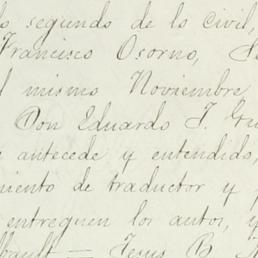 segundo de lo civil,
Francisco Osorno,
mismo Noviembre
Don Eduardo J.
antecede y entendido,
miento de traductor y
entreguen los autos, y
Jesus B.